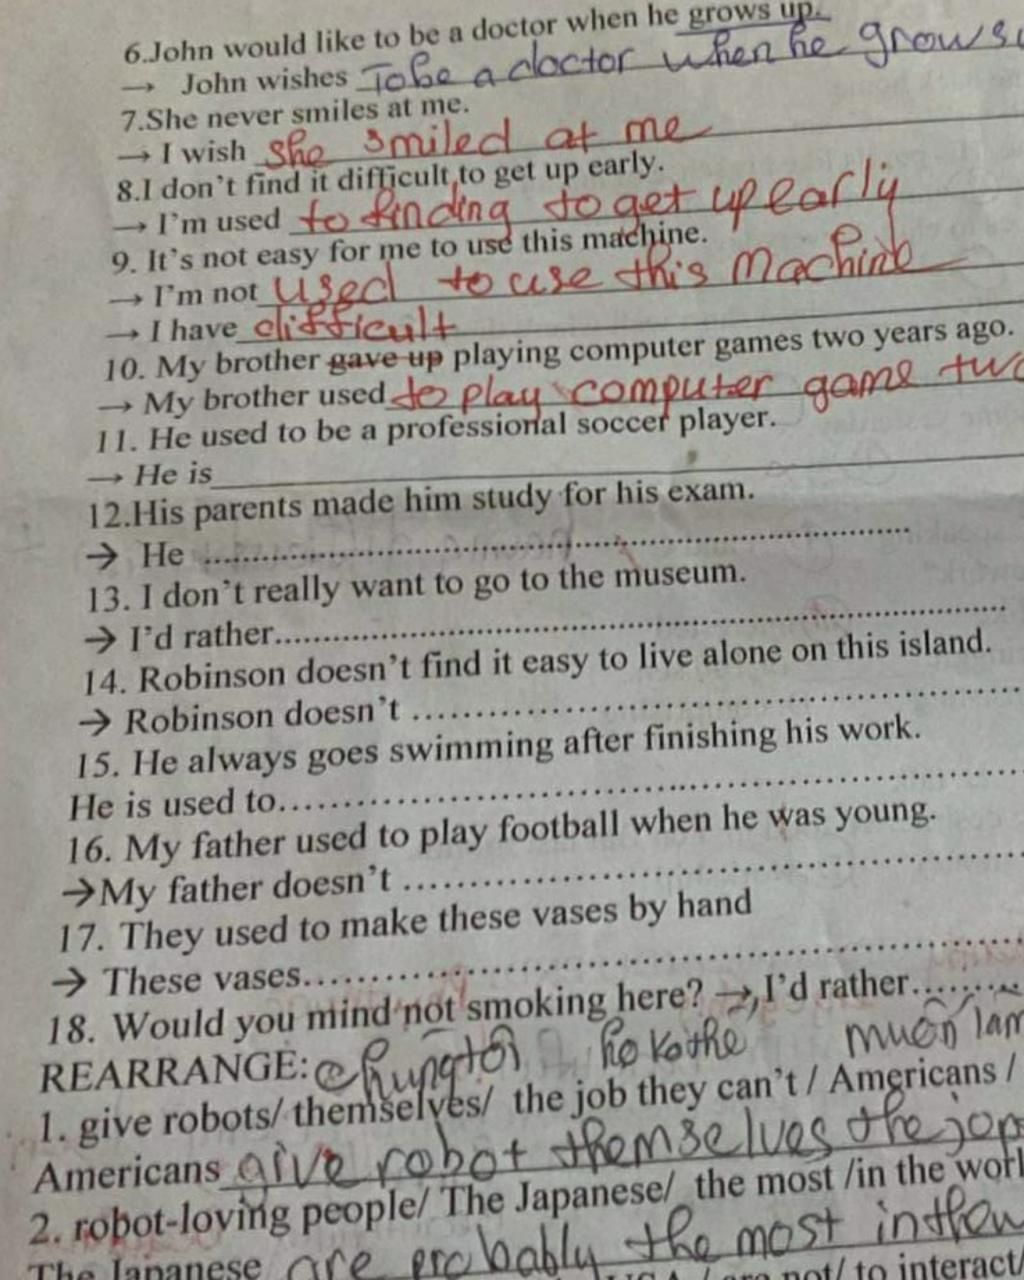 6.John would like to be a doctor when he grows up.
→ John wishes To be a doctor when he grows
7.She never smiles at me.
→ I wish she smiled at me
8.I don't find it difficult to get up early.
→ I'm used to finding to get up early
9. It's not easy for me to use this machine.
→ I'm not used to use this machine
→ I have difficult
10. My brother gave up playing computer games two years ago.
→ My brother used to play computer game two
11. He used to be a professional soccer player.
→ He is
12.His parents made him study for his exam.
→ He ................
13. I don't really want to go to the museum.
→ I'd rather................
14. Robinson doesn't find it easy to live alone on this island.
→ Robinson doesn't ................
15. He always goes swimming after finishing his work.
He is used to................
16. My father used to play football when he was young.
→My father doesn't ................
17. They used to make these vases by hand
→ These vases................
18. Would you mind not smoking here? → I'd rather.........
REARRANGE: chúng tôi họ ko thể muốn làm
1. give robots/ themselves/ the job they can't / Americans /
Americans give robot themselves the jop
2. robot-loving people/ The Japanese/ the most /in the worl
The Japanese are probably the most in the w
are not/ to interact/